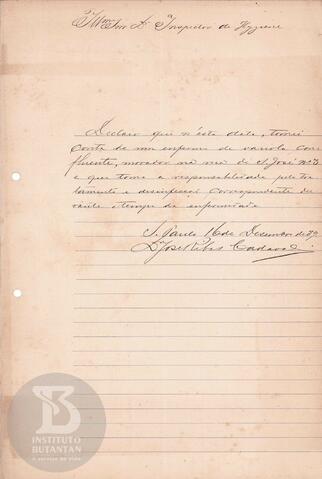 Illmo Snr Dr Inspector de Hygiene
Declaro que n'esta data, tomei
conta de um enfermo de variola con
fluente, morador na rua de S. José nº
e que tomo a responsabilidade pelo tra
tamento e desinfecção correspondente du
rante o tempo da enfermidade
S. Paulo 16 de Dezembro de
Dr José
INSTITUTO
BUTANTAN
A serviço da vida